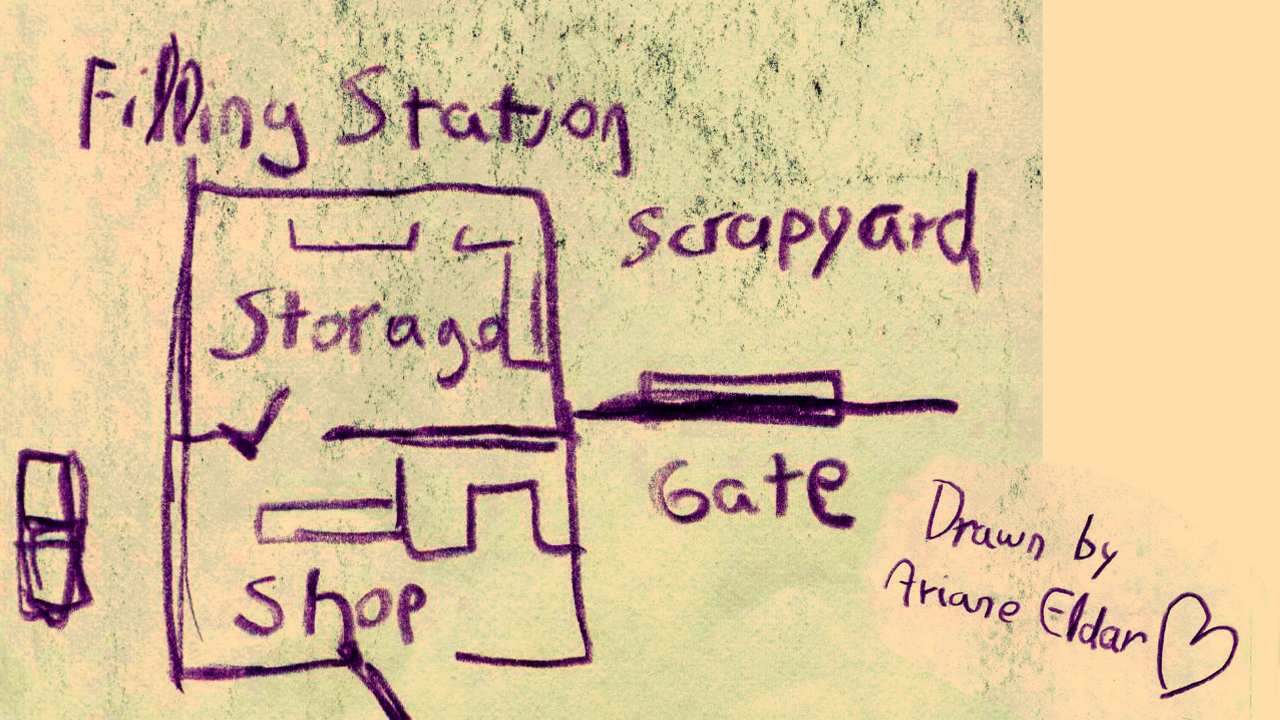 Filling Station
Scrapyard
Storage
Gate
Shop
Drawn by
Ariane Eldar